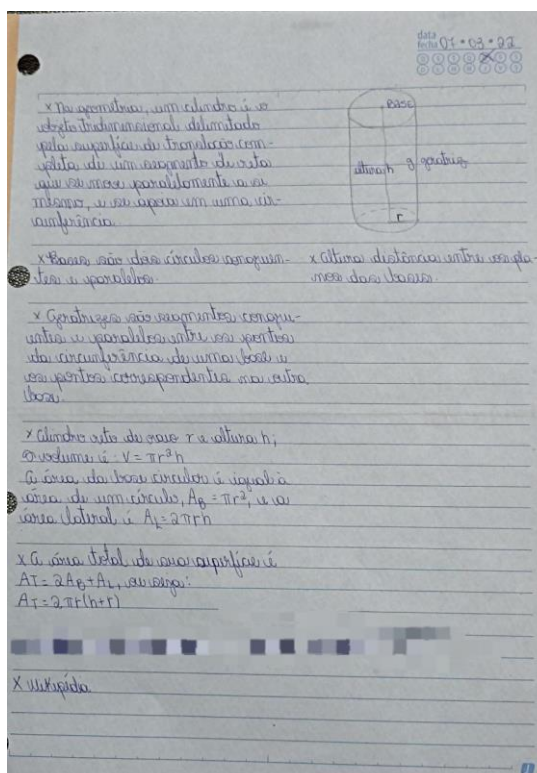 data
fecha 07 • 03 • 22
Base
altura h
g geratriz
r
x Na geometria, um cilindro é o
objeto tridimensional delimitado
pela superfície de translação com-
pleta de um segmento de reta
que se move paralelamente a si
mesmo, e se apoia em uma cir-
cunferência.
x Bases são dois círculos congruen-
tes e paralelos.
x Altura distância entre os pla-
nos das bases.
x Geratrizes são segmentos congru-
entes e paralelos entre os pontos
da circunferência de uma base e
os pontos correspondentes na outra
base.
x Cilindro reto de raio r e altura h;
o volume é: V = πr²h
A área da base circular é igual à
área de um círculo, A_B = πr², e a
área lateral é A_L = 2πrh
x A área total de sua superfície é
AT = 2A_B + A_L, ou seja:
A_T = 2πr(h+r)
X Wikipédia